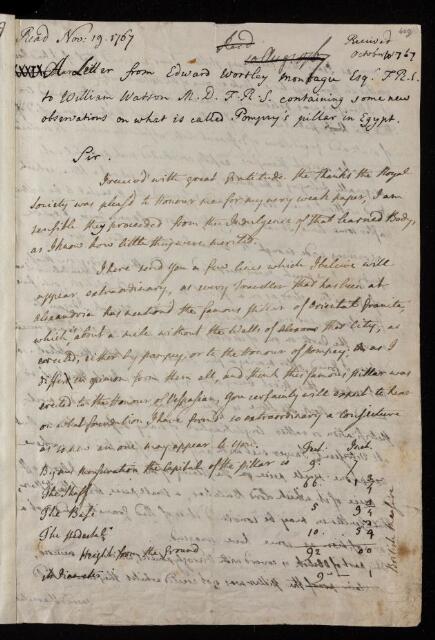 Read Nov: 19. 1767
Received
October 1767
XXXIX A Letter from Edward Wortley Montagu Esq. F.R.S.
to William Watson M.D. F.R.S. containing some new
observations on what is called Pompey's pillar in Egypt.
Sir.
I received with great Gratitude the thanks the Royal
Society was pleas'd to honour me for my very weak paper, I am
sensible they proceeded from the Indulgence of that learned Body,
as I know how little they were merited.
I here send you a few lines which I beleive will
appear extraordinary, as every Traveller that has been at
Alexandria has mention'd the famous pillar of Oriental Granite,
which is about a mile without the Walls of that City, as
erected, either by pompey, or to the Honour of pompey. As I
differ in opinion from them all, and think this famous pillar was
erected to the Honour of Vespasian, You certainly will expect to hear
on what foundation I have form'd so extraordinary a conjecture
as such an one may appear to You.
By my mensuration the Capital of the pillar is
Feet. Inch.
9. 7
The Shaft 66.
The Base 5 9
The pedestal 10. 5
Height from the Ground 92 00
its Diameter 9 1
English measure